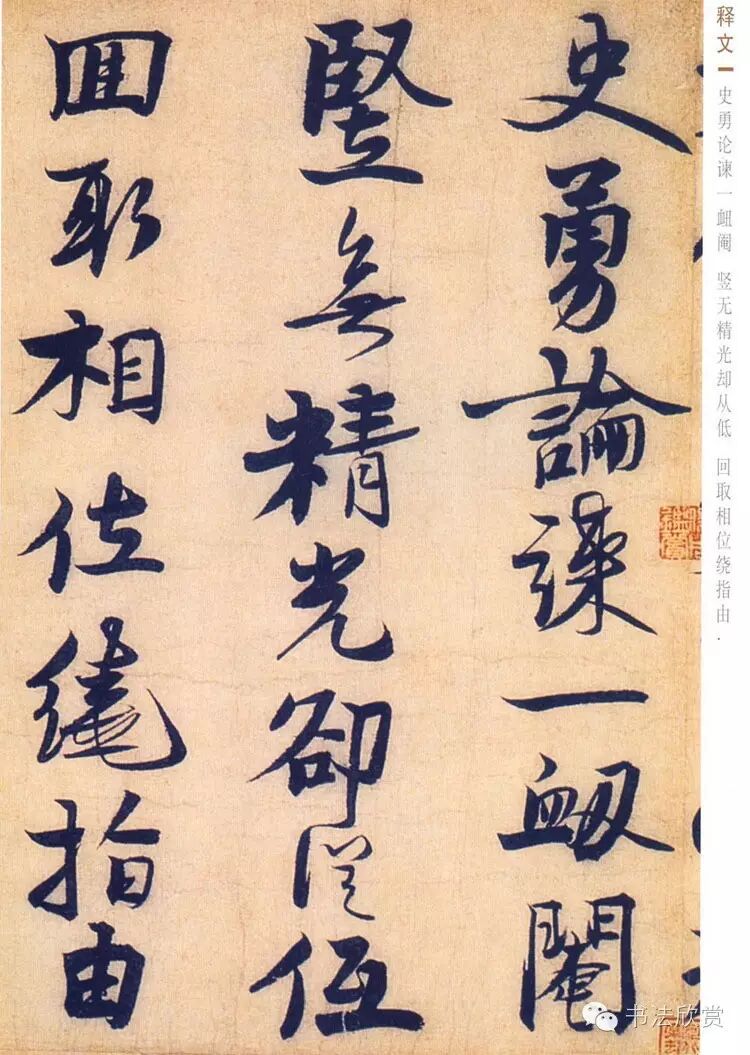 释文
史勇论谏一衄阉 竖无精光却从低 回取相位绕指由.
史勇論諫一衂閹
竪無精光卻從低
囬取相位繞指由
书法欣赏